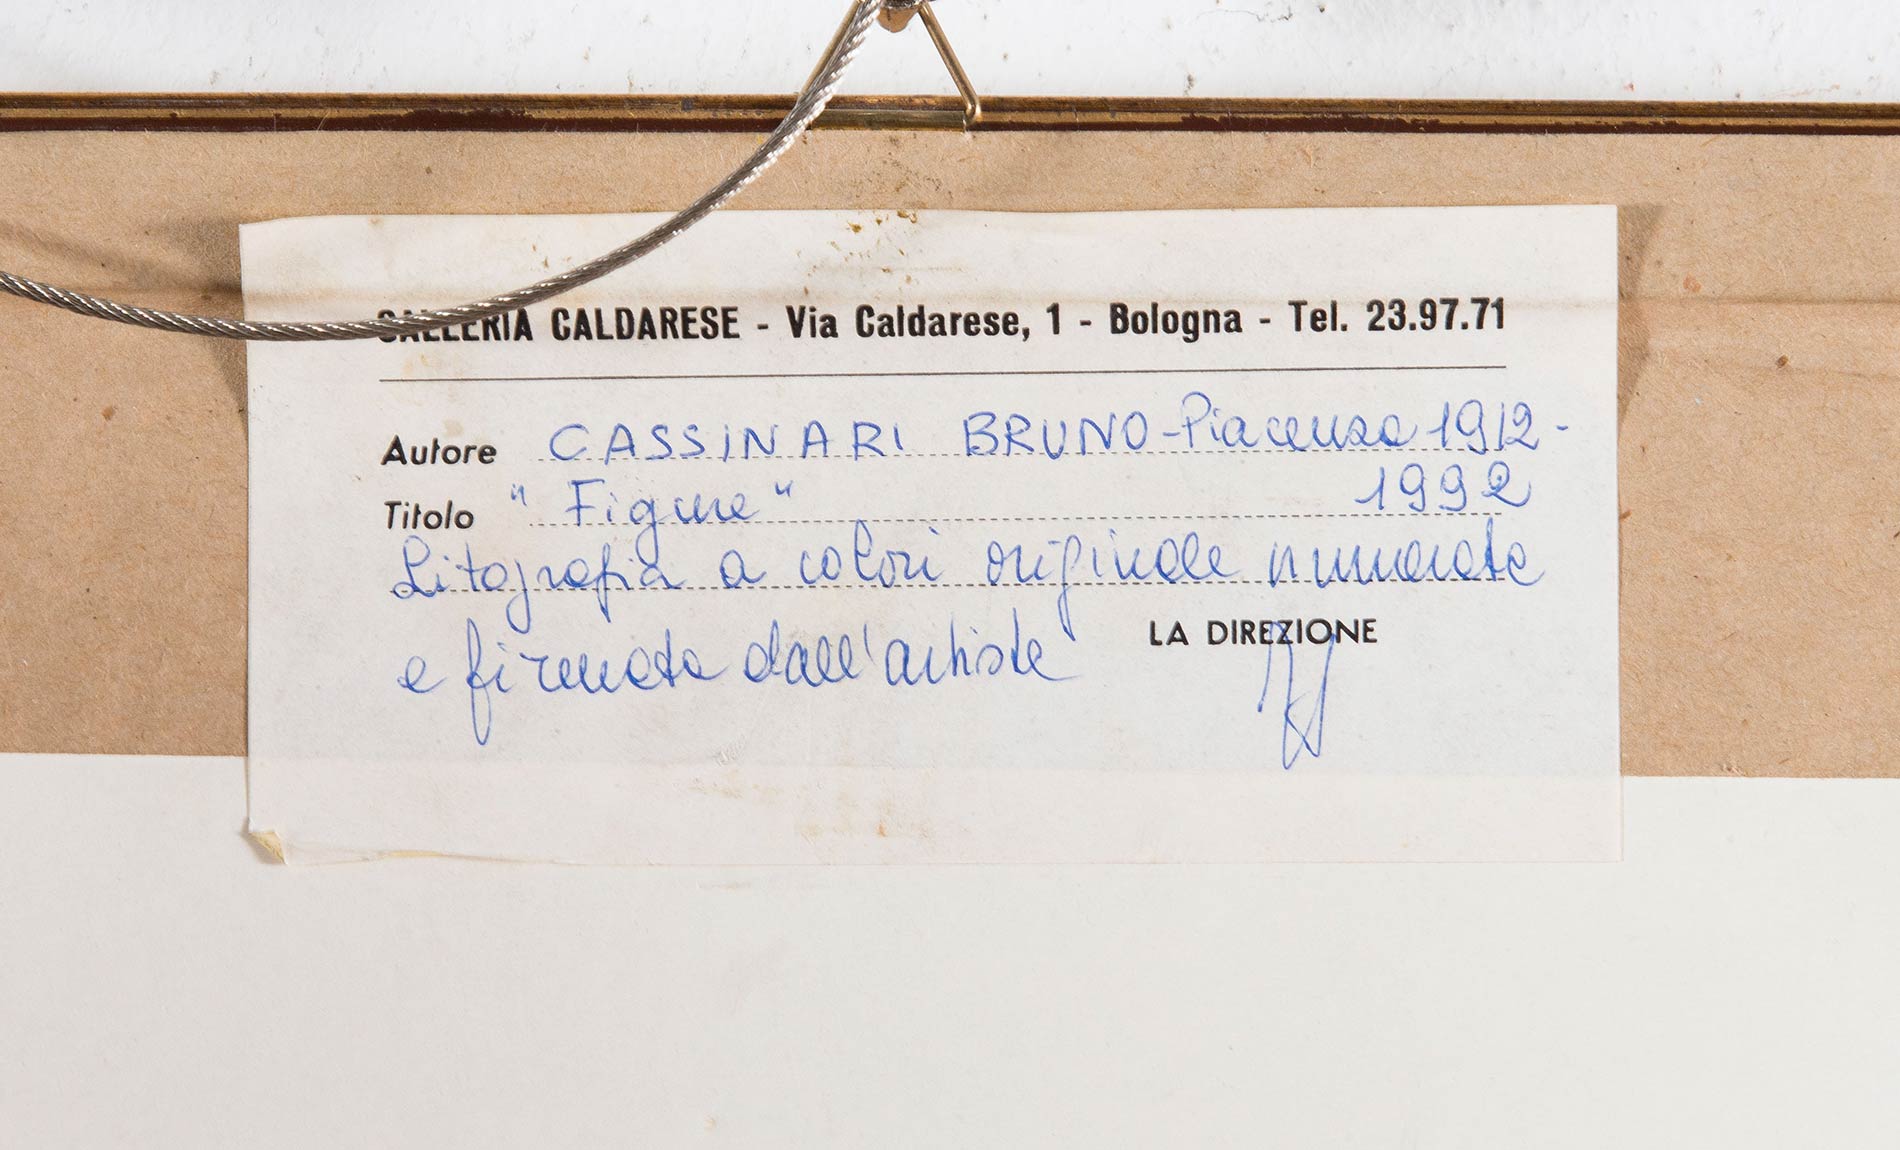 GALLERIA CALDARESE - Via Caldarese, 1 - Bologna - Tel. 23.97.71
Autore CASSINARI BRUNO - Piacenza 1912 -
Titolo "Figure" 1992
Litografia a colori originale numerata
e firmata dall'artista
LA DIREZIONE